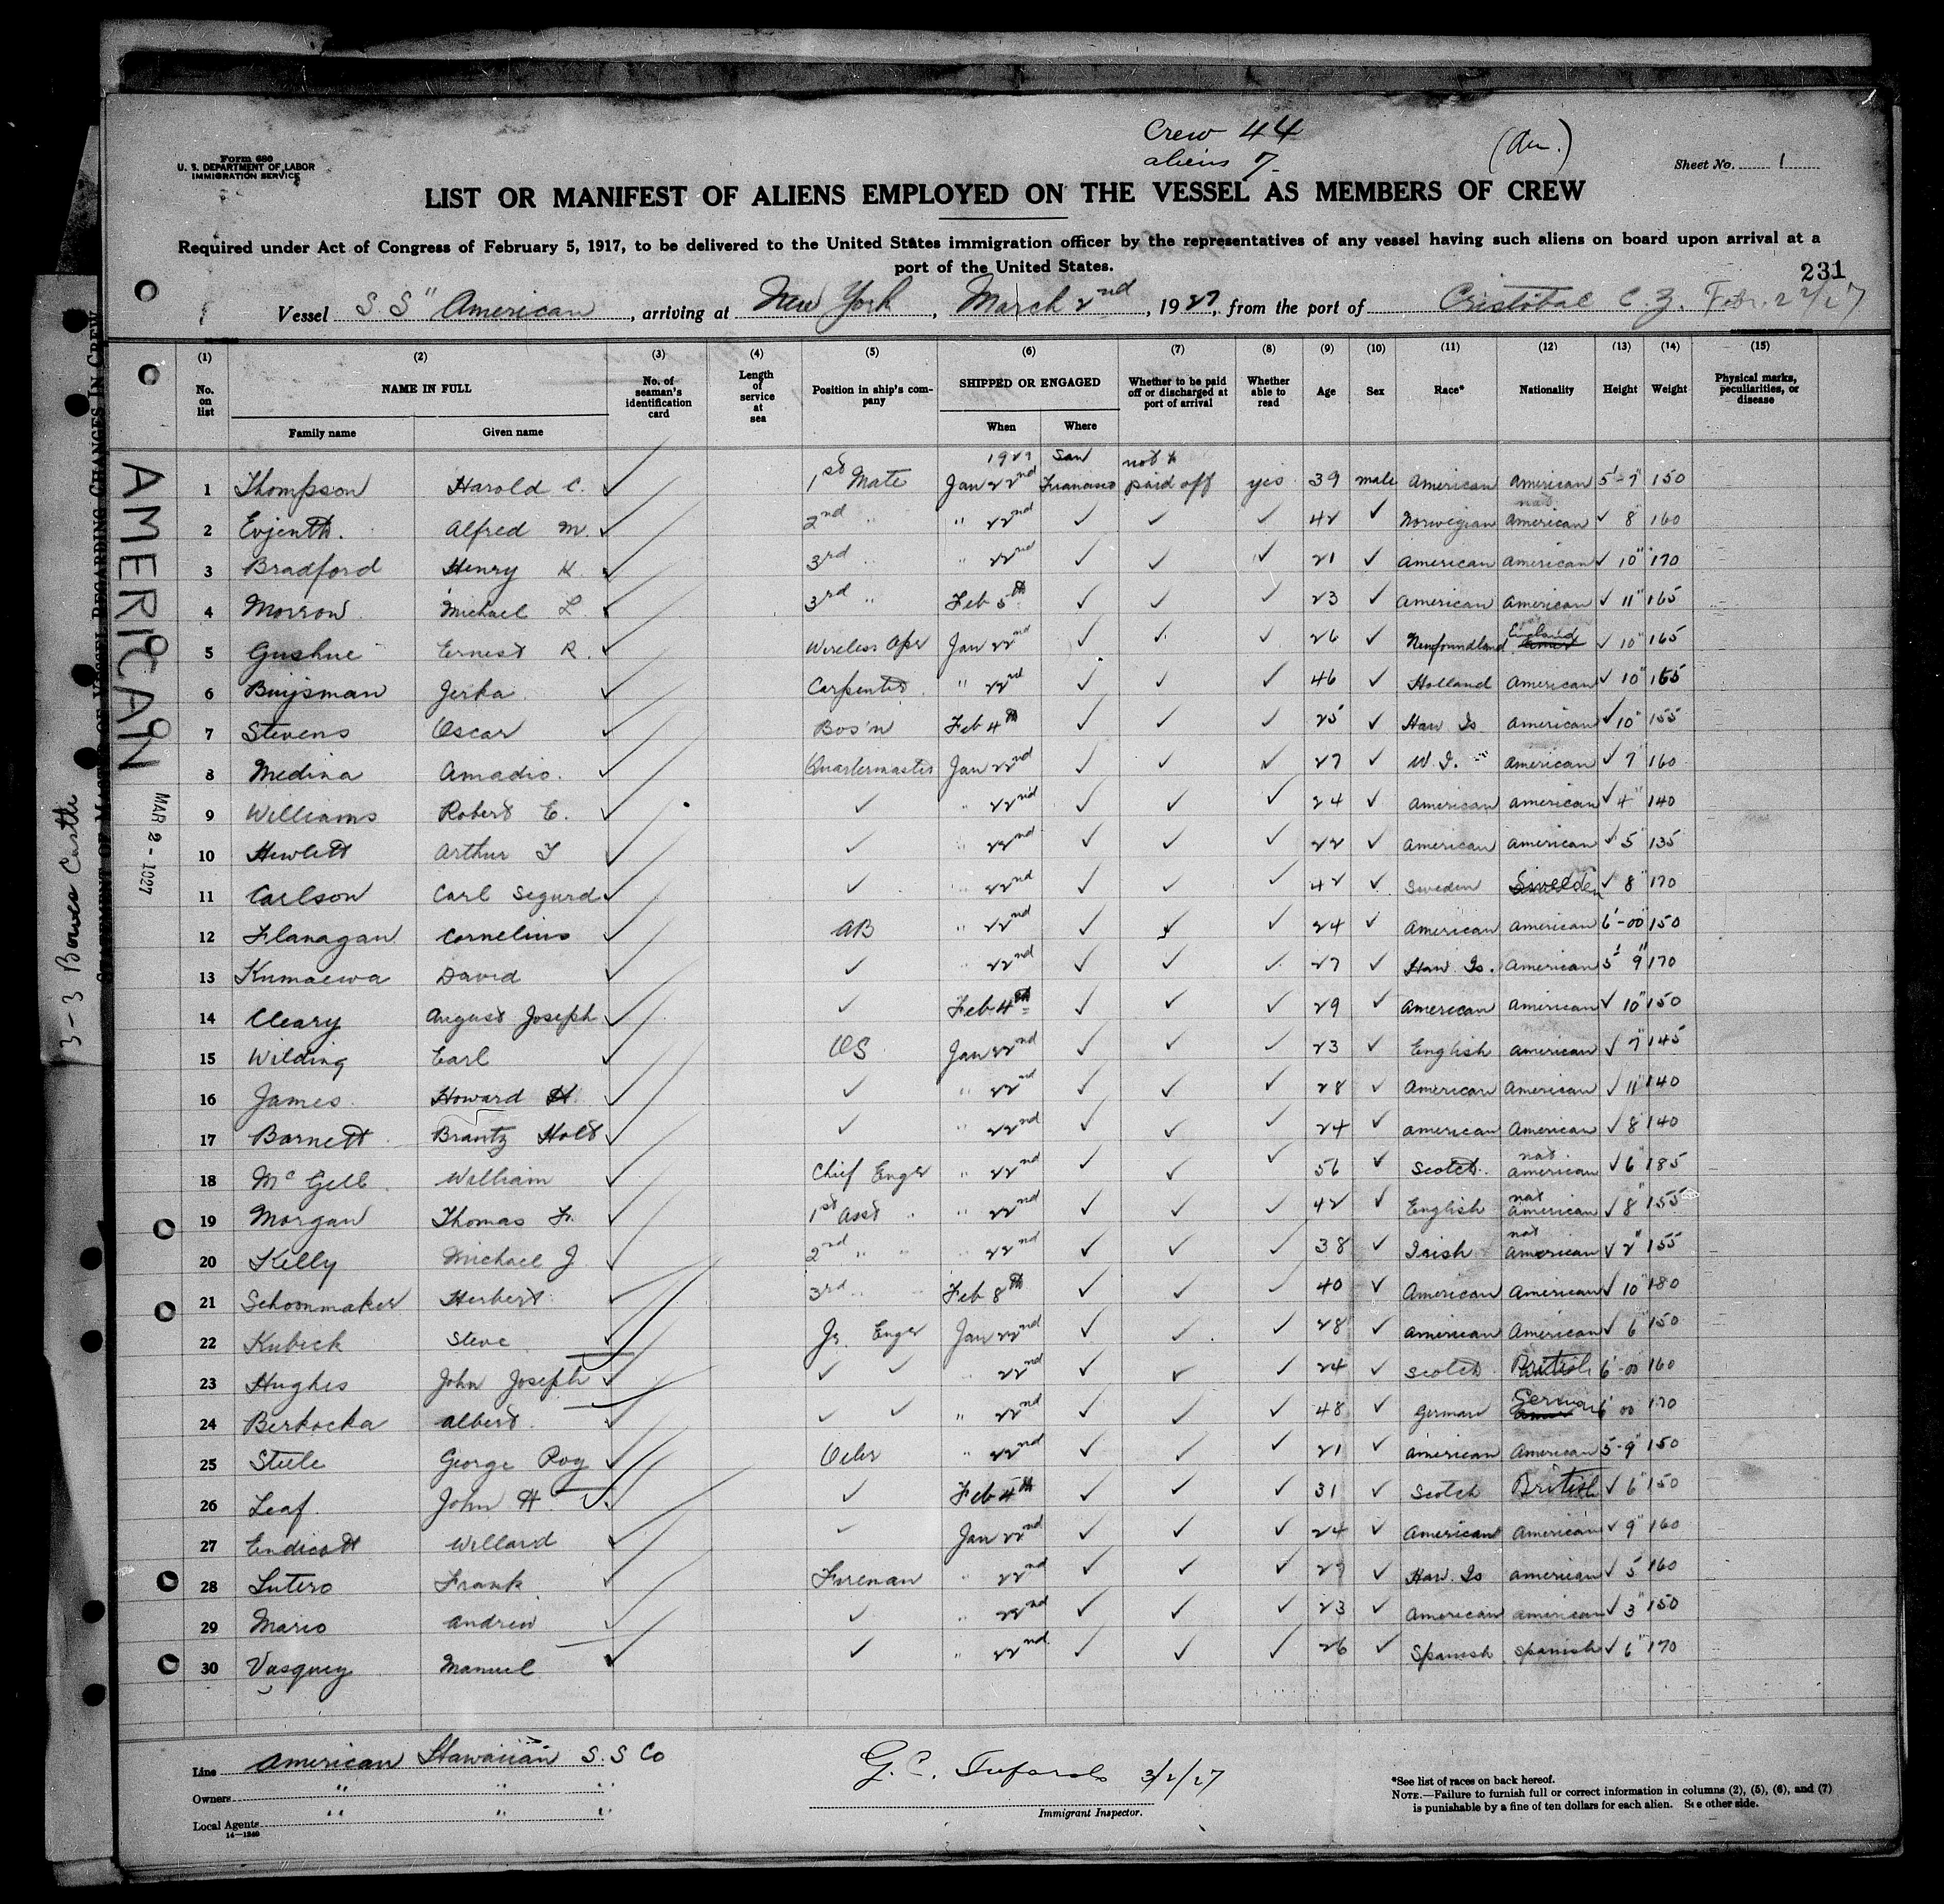 Crew 44
aliens 7
(Am.)
Form 680
U. S. DEPARTMENT OF LABOR
IMMIGRATION SERVICE
Sheet No. 1
LIST OR MANIFEST OF ALIENS EMPLOYED ON THE VESSEL AS MEMBERS OF CREW
Required under Act of Congress of February 5, 1917, to be delivered to the United States immigration officer by the representatives of any vessel having such aliens on board upon arrival at a
port of the United States.
231
Vessel S.S "American, arriving at New York, March 2nd, 1927, from the port of Cristobal C. Z. Febr. 22/27
(1) (2) (3) (4) (5) (6) (7) (8) (9) (10) (11) (12) (13) (14) (15)
No. on list NAME IN FULL No. of seaman's identification card Length of service at sea Position in ship's company SHIPPED OR ENGAGED Whether to be paid off or discharged at port of arrival Whether able to read Age Sex Race* Nationality Height Weight Physical marks, peculiarities, or disease
Family name Given name When Where
1 Thompson Harold C. ✓ 1st Mate 1927 Jan 22nd San Francisco not to paid off yes 39 male American American 5'-7" 150
2 Evjenth. Alfred M. ✓ 2nd " " 22nd ✓ ✓ ✓ 42 ✓ Norwegian nat American ✓ 8" 160
3 Bradford Henry K. ✓ 3rd " " 22nd ✓ ✓ ✓ 21 ✓ American American ✓ 10" 170
4 Morrow Michael L ✓ 3rd " Feb 5th ✓ ✓ ✓ 23 ✓ American American ✓ 11" 165
5 Gushue Ernest R. ✓ Wireless Oper Jan 22nd ✓ ✓ ✓ 26 ✓ Newfoundland England ✓ 10" 165
6 Buijsman Jerka ✓ Carpenter " 22nd ✓ ✓ ✓ 46 ✓ Holland American ✓ 10" 165
7 Stevens Oscar ✓ Bos'n Feb 4th ✓ ✓ ✓ 25 ✓ Haw Is American ✓ 10" 155
8 Medina Amadio. ✓ Quartermaster Jan 22nd ✓ ✓ ✓ 27 ✓ W. I. American ✓ 7" 160
9 Williams Robert E. ✓ ✓ " 22nd ✓ ✓ ✓ 24 ✓ American American ✓ 4" 140
10 Hewlett Arthur T ✓ ✓ " 22nd ✓ ✓ ✓ 22 ✓ American American ✓ 5 135
11 Carlson Carl Segurd ✓ ✓ " 22nd ✓ ✓ ✓ 42 ✓ Sweden Sweden ✓ 8" 170
12 Flanagan Cornelius ✓ AB " 22nd ✓ ✓ ✓ 24 ✓ American American 6'-00" 150
13 Kumaewa David ✓ ✓ " 22nd ✓ ✓ ✓ 27 ✓ Haw. Is. American 5' 9" 170
14 Cleary August Joseph ✓ ✓ Feb 4th ✓ ✓ ✓ 29 ✓ American American ✓ 10" 150
15 Wilding Earl ✓ OS Jan 22nd ✓ ✓ ✓ 23 ✓ English American ✓ 7" 145
16 James Howard H. ✓ ✓ " 22nd ✓ ✓ ✓ 28 ✓ American American ✓ 11" 140
17 Barnett Brantz Holt ✓ ✓ " 22nd ✓ ✓ ✓ 24 ✓ American American ✓ 8" 140
18 McGell William ✓ Chief Enger " 22nd ✓ ✓ ✓ 56 ✓ Scotch. nat. American ✓ 6" 185
19 Morgan Thomas Jr. ✓ 1st Asst " " 22nd ✓ ✓ ✓ 42 ✓ English nat American ✓ 8" 155
20 Kelly Michael J ✓ 2nd " " " 22nd ✓ ✓ ✓ 38 ✓ Irish nat American ✓ 2" 155
21 Schoonmaker Herbert ✓ 3rd " " Feb 8th ✓ ✓ ✓ 40 ✓ American American ✓ 10" 180
22 Kubeck Steve ✓ Jr Enger Jan 22nd ✓ ✓ ✓ 28 ✓ American American ✓ 6" 150
23 Hughes John Joseph ✓ ✓ ✓ " 22nd ✓ ✓ ✓ 24 ✓ Scotch British 6'-00" 160
24 Berkocka Albert ✓ ✓ ✓ " 22nd ✓ ✓ ✓ 48 ✓ German German 6' 00 170
25 Steele George Roy ✓ Oiler " 22nd ✓ ✓ ✓ 21 ✓ American American 5-9" 150
26 Leaf John H ✓ ✓ Feb 4th ✓ ✓ ✓ 31 ✓ Scotch British ✓ 6" 150
27 Endicott Willard ✓ ✓ Jan 22nd ✓ ✓ ✓ 24 ✓ American American ✓ 9" 160
28 Lutero Frank ✓ Fireman " 22nd ✓ ✓ ✓ 27 ✓ Haw. Is American ✓ 5" 160
29 Mario Andrew ✓ ✓ " 22nd ✓ ✓ ✓ 23 ✓ American American ✓ 3" 150
30 Vasquez Manuel ✓ ✓ " 22nd ✓ ✓ ✓ 26 ✓ Spanish Spanish ✓ 6" 170
AMERICAN
MAR 2 - 1927
3-3 Bowes Castle
STATEMENT OF MASTER OF VESSEL REGARDING CHANGES IN CREW
Line American Hawaiian S.S Co
Owners " " "
Local Agents " " "
14—1240
3/2/27
Immigrant Inspector.
*See list of races on back hereof.
NOTE.—Failure to furnish full or correct information in columns (2), (5), (6), and (7)
is punishable by a fine of ten dollars for each alien. See other side.